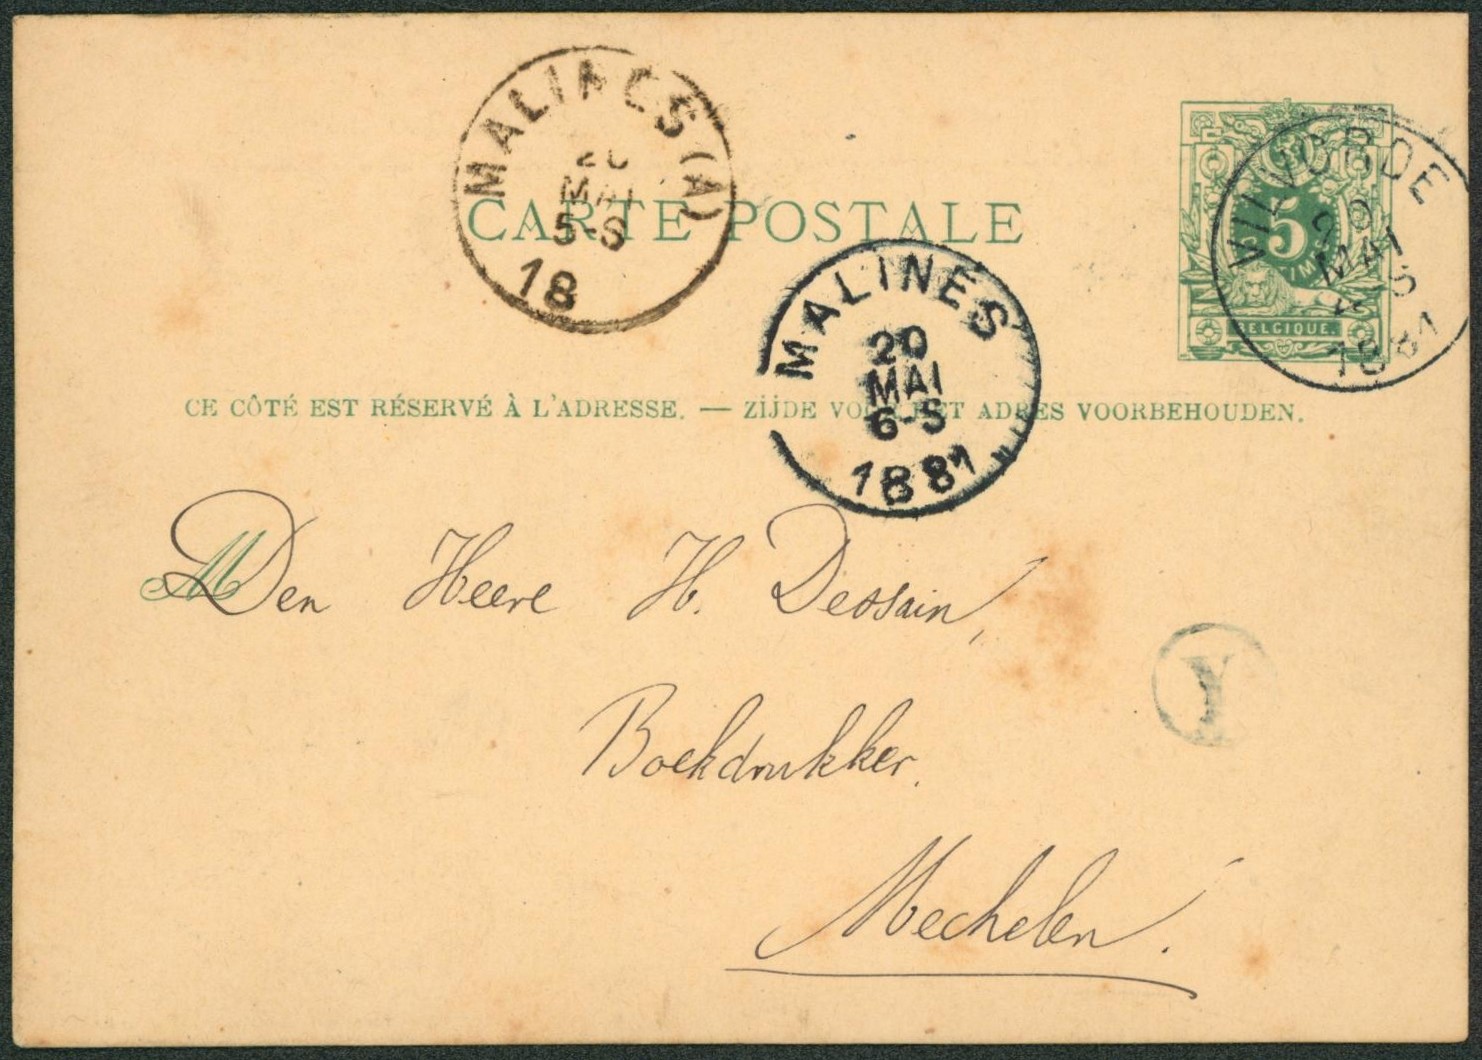 MALINES (A)
20
MAI
5-S
18
CARTE POSTALE
5
BELGIQUE.
VILVORDE
20
MAI
1881
MALINES
20
MAI
6-S
1881
CE CÔTÉ EST RÉSERVÉ À L'ADRESSE. — ZIJDE VOOR HET ADRES VOORBEHOUDEN.
M
Den Heere H. Dessain,
Y
Boekdrukker.
Mechelen.